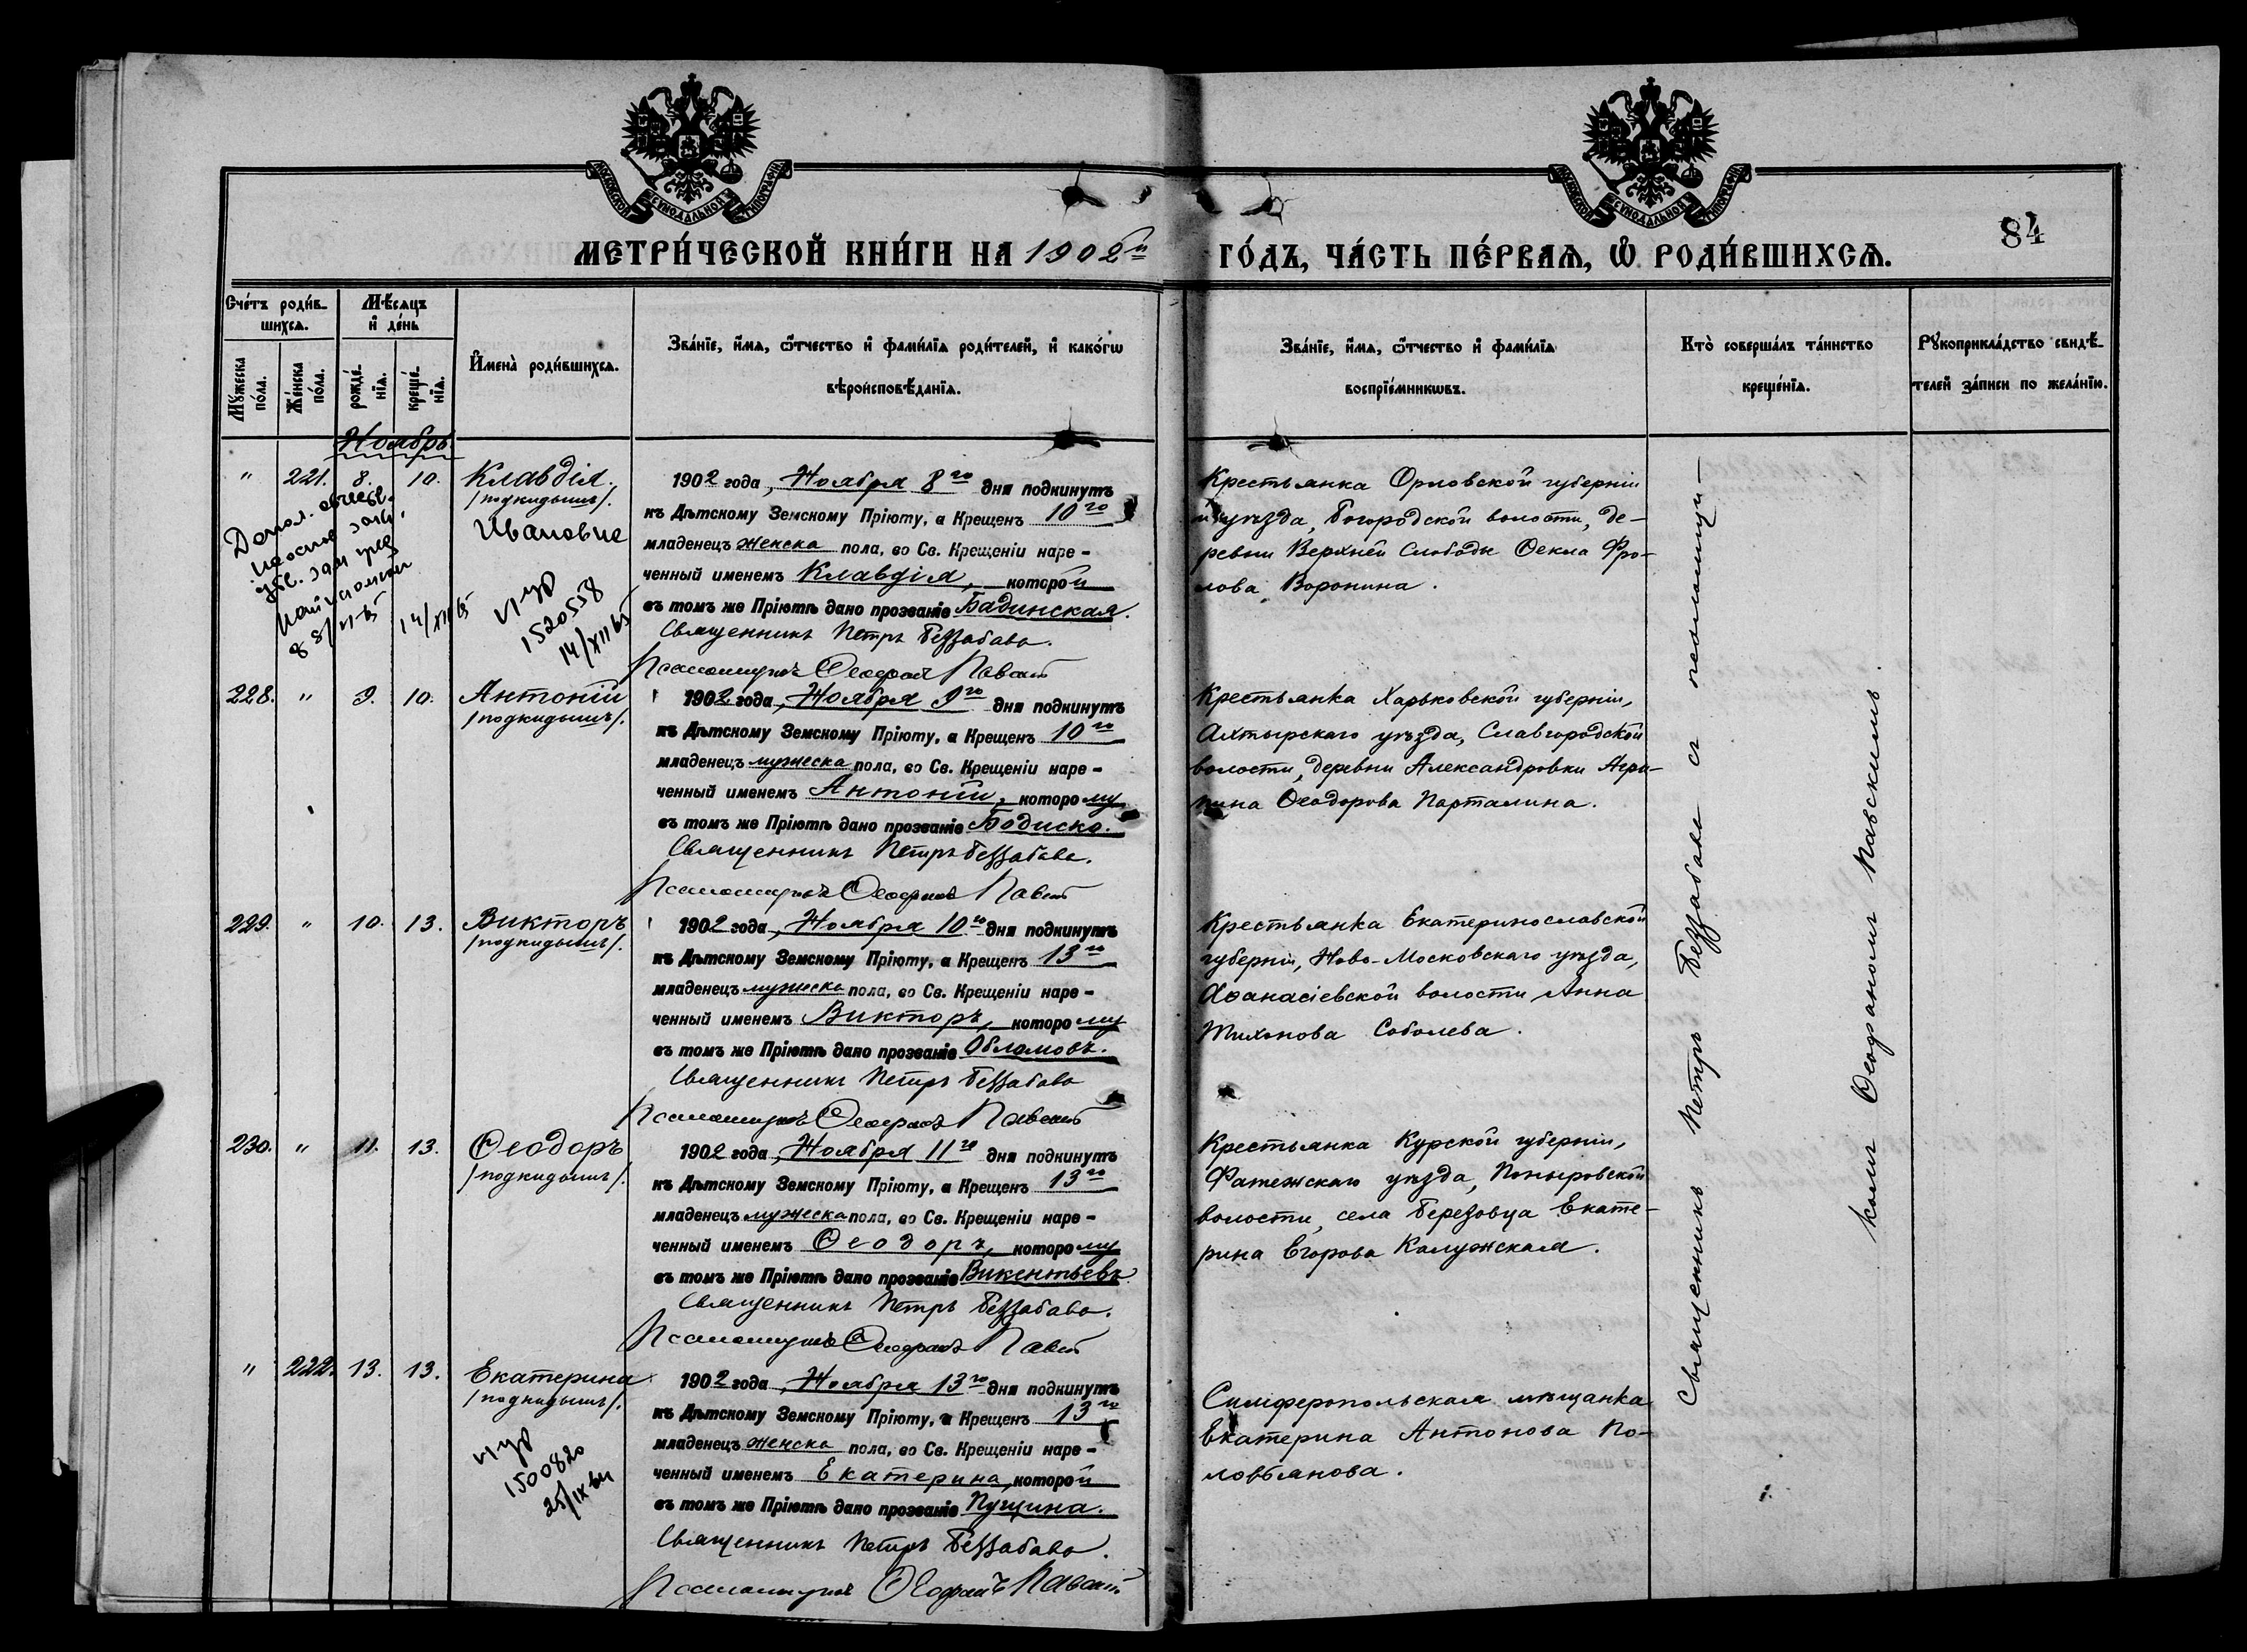 МОСКОВСКОЙ СѴНОДАЛЬНОЙ ТИПОГРАФІИ
МОСКОВСКОЙ СѴНОДАЛЬНОЙ ТИПОГРАФІИ
84
МЕТРИ́ЧЕСКОЙ КНИ́ГИ НА 1902й ГО́ДЪ, ЧА́СТЬ ПЕ́РВАѦ, Ѡ҆ РОДИ́ВШИХСѦ.
Сче́тъ роди́в-
шихсѧ.
Мꙋжеска по́ла.
Же́нска по́ла.
Мѣ́сѧцъ
и҆ де́нь
рожде́-
нїѧ.
креще́-
нїѧ.
И҆мена̀ роди́вшихсѧ.
Зва́нїе, и҆́мѧ, ѻ҆́тчество и҆ фами́лїѧ роди́телей, и҆ како́гѡ
вѣроисповѣ́данїѧ.
Зва́нїе, и҆́мѧ, ѻ҆́тчество и҆ фами́лїѧ
воспрїе́мникѡвъ.
Кто̀ соверша́лъ та́инство
креще́нїѧ.
Рꙋкоприкла́дство свидѣ́-
телей за́писи по жела́нїю.
Ноябрь.
" 221. 8. 10. Клавдія.
/подкидышъ/.
Ивановна
14/XII 65
1520558
14/XII 65
1902 года, Ноября 8го дня подкинутъ
къ Дѣтскому Земскому Пріюту, а Крещенъ 10го
младенецъ женска пола, во Св. Крещеніи наре-
ченный именемъ Клавдія, которой
въ томъ же Пріютѣ дано прозваніе Бадинская.
Священникъ Петръ Беззабава.
Псаломщикъ Ѳеофанъ
Крестьянка Орловской губерніи
и уѣзда, Богородской волости, де-
ревни Верхней Слободы Ѳекла Фро-
лова Воронина.
228. " 9. 10. Антоній
/подкидышъ/.
1902 года, Ноября 9го дня подкинутъ
къ Дѣтскому Земскому Пріюту, а Крещенъ 10го
младенецъ мужеска пола, во Св. Крещеніи наре-
ченный именемъ Антоній, которому
въ томъ же Пріютѣ дано прозваніе Бодиско.
Священникъ Петръ Беззабава.
Псаломщикъ Ѳеофанъ
Крестьянка Харьковской губерніи,
Ахтырскаго уѣзда, Славгородской
волости, деревни Александровки Агри-
пина Ѳеодорова Порталина.
229. " 10. 13. Викторъ
/подкидышъ/.
1902 года, Ноября 10го дня подкинутъ
къ Дѣтскому Земскому Пріюту, а Крещенъ 13го
младенецъ мужеска пола, во Св. Крещеніи наре-
ченный именемъ Викторъ, которому
въ томъ же Пріютѣ дано прозваніе Обломовъ.
Священникъ Петръ Беззабава
Псаломщикъ Ѳеофанъ
Крестьянка Екатеринославской
губерніи, Ново-Московскаго уѣзда,
Аѳанасіевской волости Анна
Тихонова Соболева.
230. " 11. 13. Ѳеодоръ
/подкидышъ/.
1902 года, Ноября 11го дня подкинутъ
къ Дѣтскому Земскому Пріюту, а Крещенъ 13го
младенецъ мужеска пола, во Св. Крещеніи наре-
ченный именемъ Ѳеодоръ, которому
въ томъ же Пріютѣ дано прозваніе Викентьевъ
Священникъ Петръ Беззабава.
Псаломщикъ Ѳеофанъ
Крестьянка Курской губерніи,
Фатежскаго уѣзда, Поныровской
волости, села Березовца Екате-
рина Егорова Калужская.
" 222. 13. 13. Екатерина
/подкидышъ/.
1500820
25/IX 64
1902 года, Ноября 13го дня подкинутъ
къ Дѣтскому Земскому Пріюту, а Крещенъ 13го
младенецъ женска пола, во Св. Крещеніи наре-
ченный именемъ Екатерина, которой
въ томъ же Пріютѣ дано прозваніе Пущина.
Священникъ Петръ Беззабава.
Псаломщикъ Ѳеофанъ
Симферопольская мѣщанка
Екатерина Антонова По-
ловьянова.
Священникъ Петръ Беззабава съ псаломщи-
комъ Ѳеофаномъ Павскимъ.